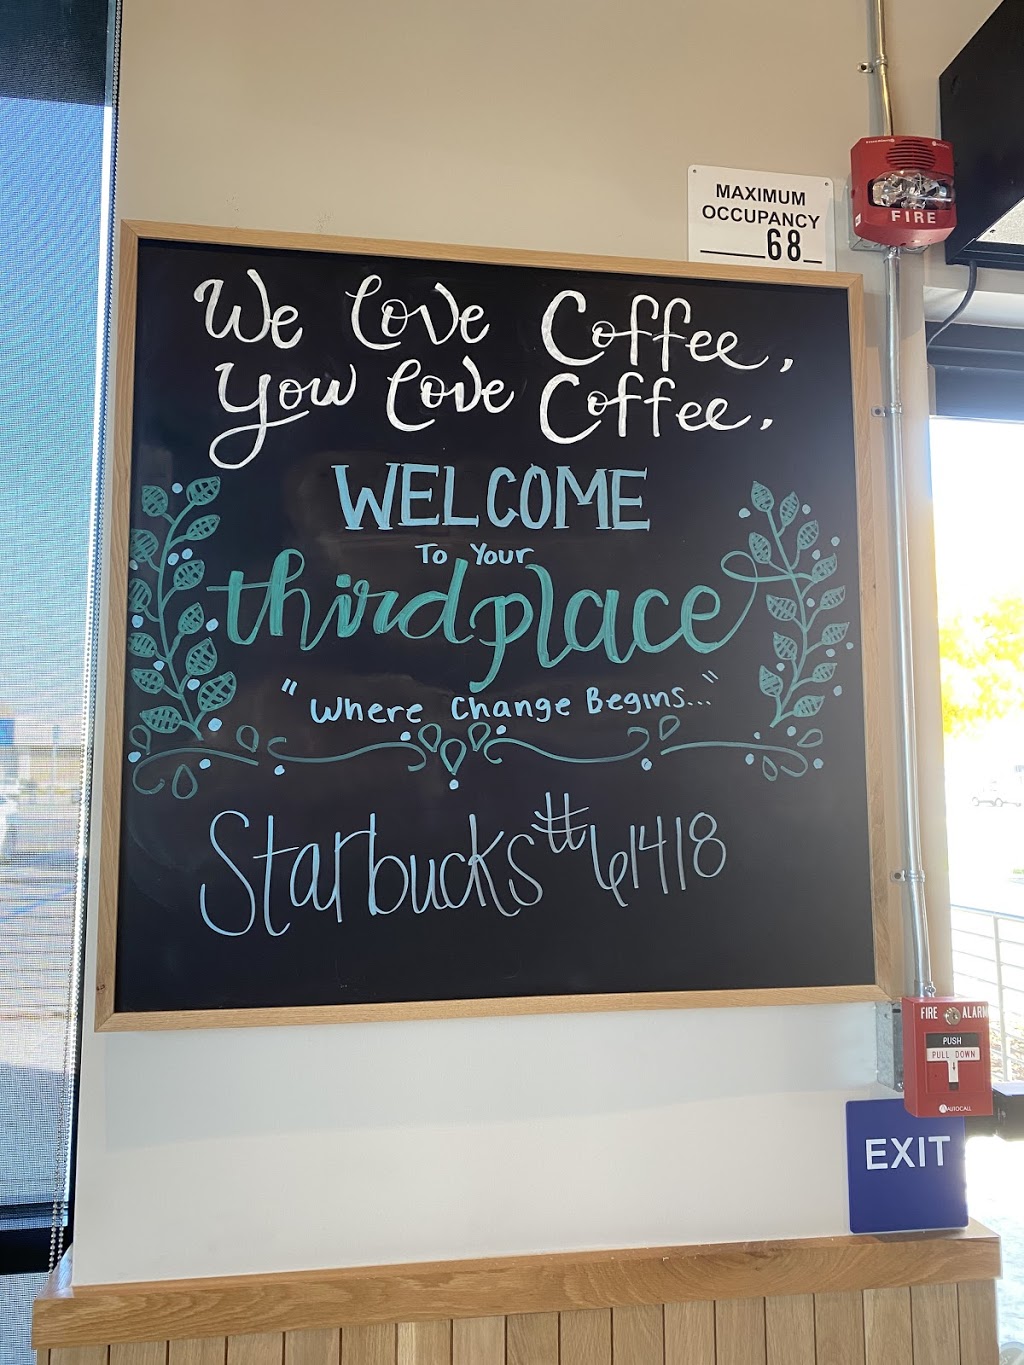 MAXIMUM
OCCUPANCY
68
FIRE
We Love Coffee,
You Love Coffee.
WELCOME
To Your
third place
"Where Change Begins..."
Starbucks #61418
FIRE ALARM
PUSH
PULL DOWN
AUTOCALL
EXIT